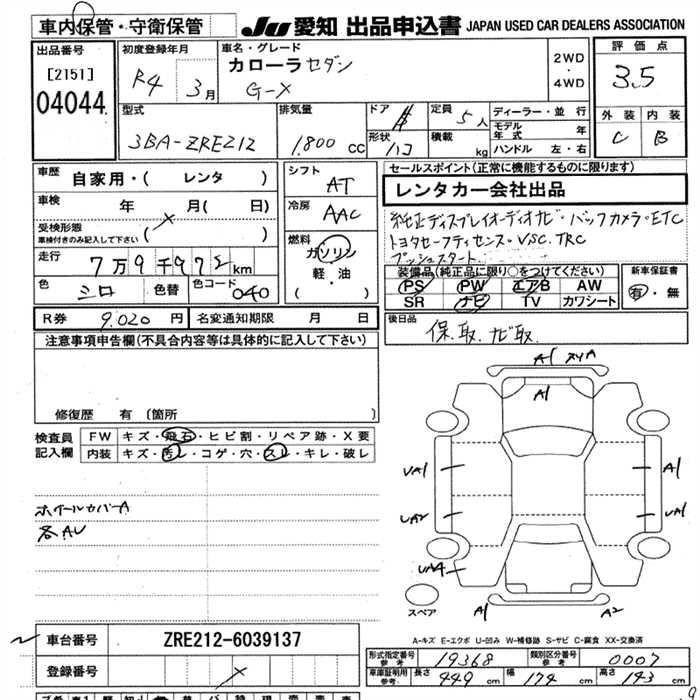 車内保管・守衛保管 JU 愛知 出品申込書 JAPAN USED CAR DEALERS ASSOCIATION
出品番号 初度登録年月 車名・グレード 評価点
[2151] R4 3月 カローラセダン 2WD・4WD 3.5
04044 G-X
型式 排気量 ドア 定員 ディーラー・並行 外装 内装
3BA-ZRE212 1,800 CC 5人 モデル年式 年 C B
形状 ハコ 積載 kg ハンドル 左・右
車歴 自家用・( レンタ ) シフト AT セールスポイント(正常に機能するものに限ります)
車検 年 月( 日) 冷房 AAC レンタカー会社出品
受検形態 ( × )
車検付きのみ記入して下さい
純正ディスプレイオーディオナビ・バックカメラ・ETC
トヨタセーフティセンス・VSC.TRC
プッシュスタート
走行 7万9千972km 燃料 ガソリン
軽・油
( )
色 シロ 色替 色コード 040
装備品(純正品に限り○をつけてください) 新車保証書
PS PW エアB AW 有・無
SR ナビ TV カワシート
R券 9.020円 名変通知期限 月 日 後日品 保.取.ナビ取.
注意事項申告欄(不具合内容等は具体的に記入して下さい)
修復歴 有 〔箇所 〕
検査員記入欄 FW キズ・飛石・ヒビ割・リペア跡・X要
内装 キズ・汚レ・コゲ・穴・スレ・キレ・破レ
ホイールカバーA
各AU
A1
A1
UA1 A1
UA2 UA1
A1 A2
スペア
A-キズ E-エクボ U-凹み W-補修跡 S-サビ C-腐食 XX-交換済
車台番号 ZRE212-6039137
登録番号 ×
形式指定番号 参考 19368 類別区分番号 参考 0007
車庫証明用 参考 長さ 449cm 幅 174cm 高さ 143cm